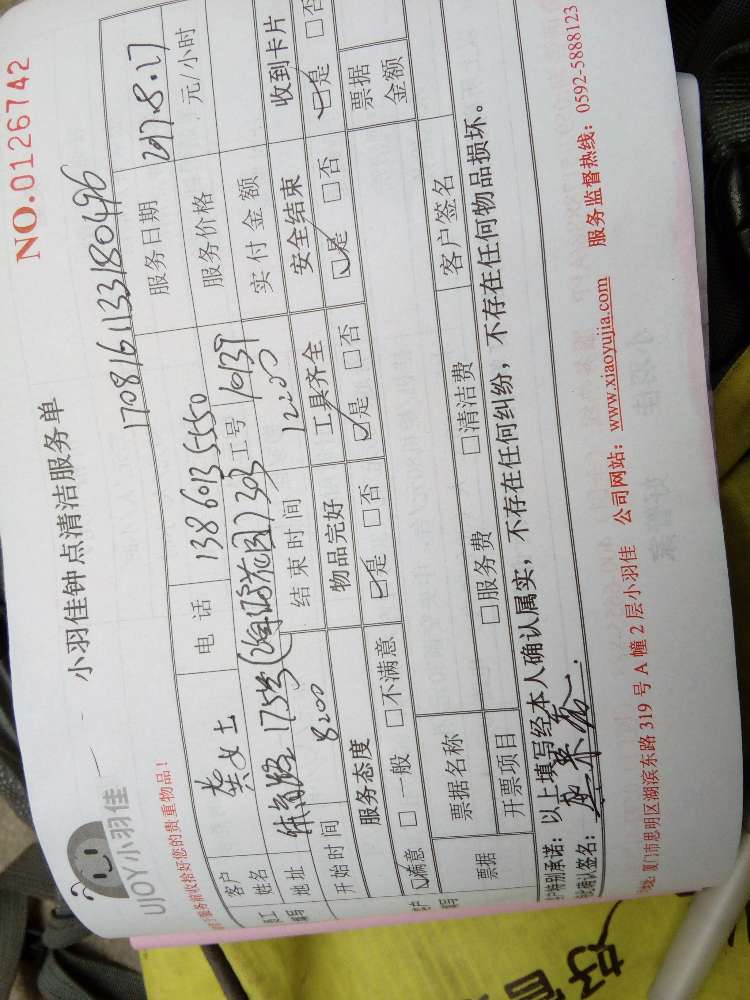 UJOY小羽佳
小羽佳钟点清洁服务单
NO.0126742
1708161133180496
服务前收给好您的贵重物品！
客户姓名 龚女士 电话 13860135550 服务日期 2017.8.17
地址 175号 1303 工号 10137 服务价格 元/小时
开始时间 8:00 结束时间 12:00 实付金额
服务态度 物品完好 工具齐全 安全结束 收到卡片
☑满意 □一般 □不满意 ☑是 □否 ☑是 □否 ☑是 □否 ☑是 □否
票据 票据名称 票据金额
开票项目 □服务费 □清洁费 客户签名
特别承诺：以上填写经本人确认属实，不存在任何纠纷，不存在任何物品损坏。
确认签名：
地址：厦门市思明区湖滨东路 319 号 A 幢 2 层小羽佳 公司网站：www.xiaoyujia.com 服务监督热线：0592-5888123